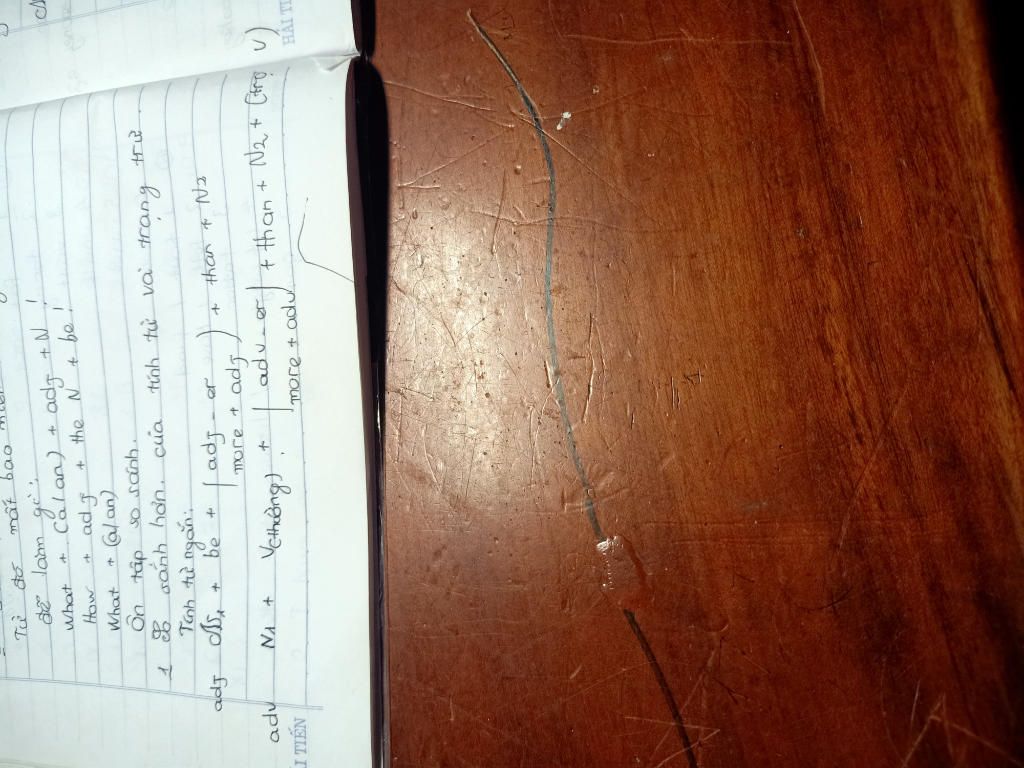 Từ đó mất bao nhiêu
để làm gì:
What + (a/an) + adj + N !
How + adj + the N + be !
What + (a/an)
Ôn tập so sánh.
1 sánh hơn. của tính từ và trạng từ.
Tính từ ngắn:
adj N1 + be + | adj - er ) + than + N2
more + adj)
adv N1 + V(thường) + | adv - er | + than + N2 + (trợ V)
more + adv
HẢI TIẾN